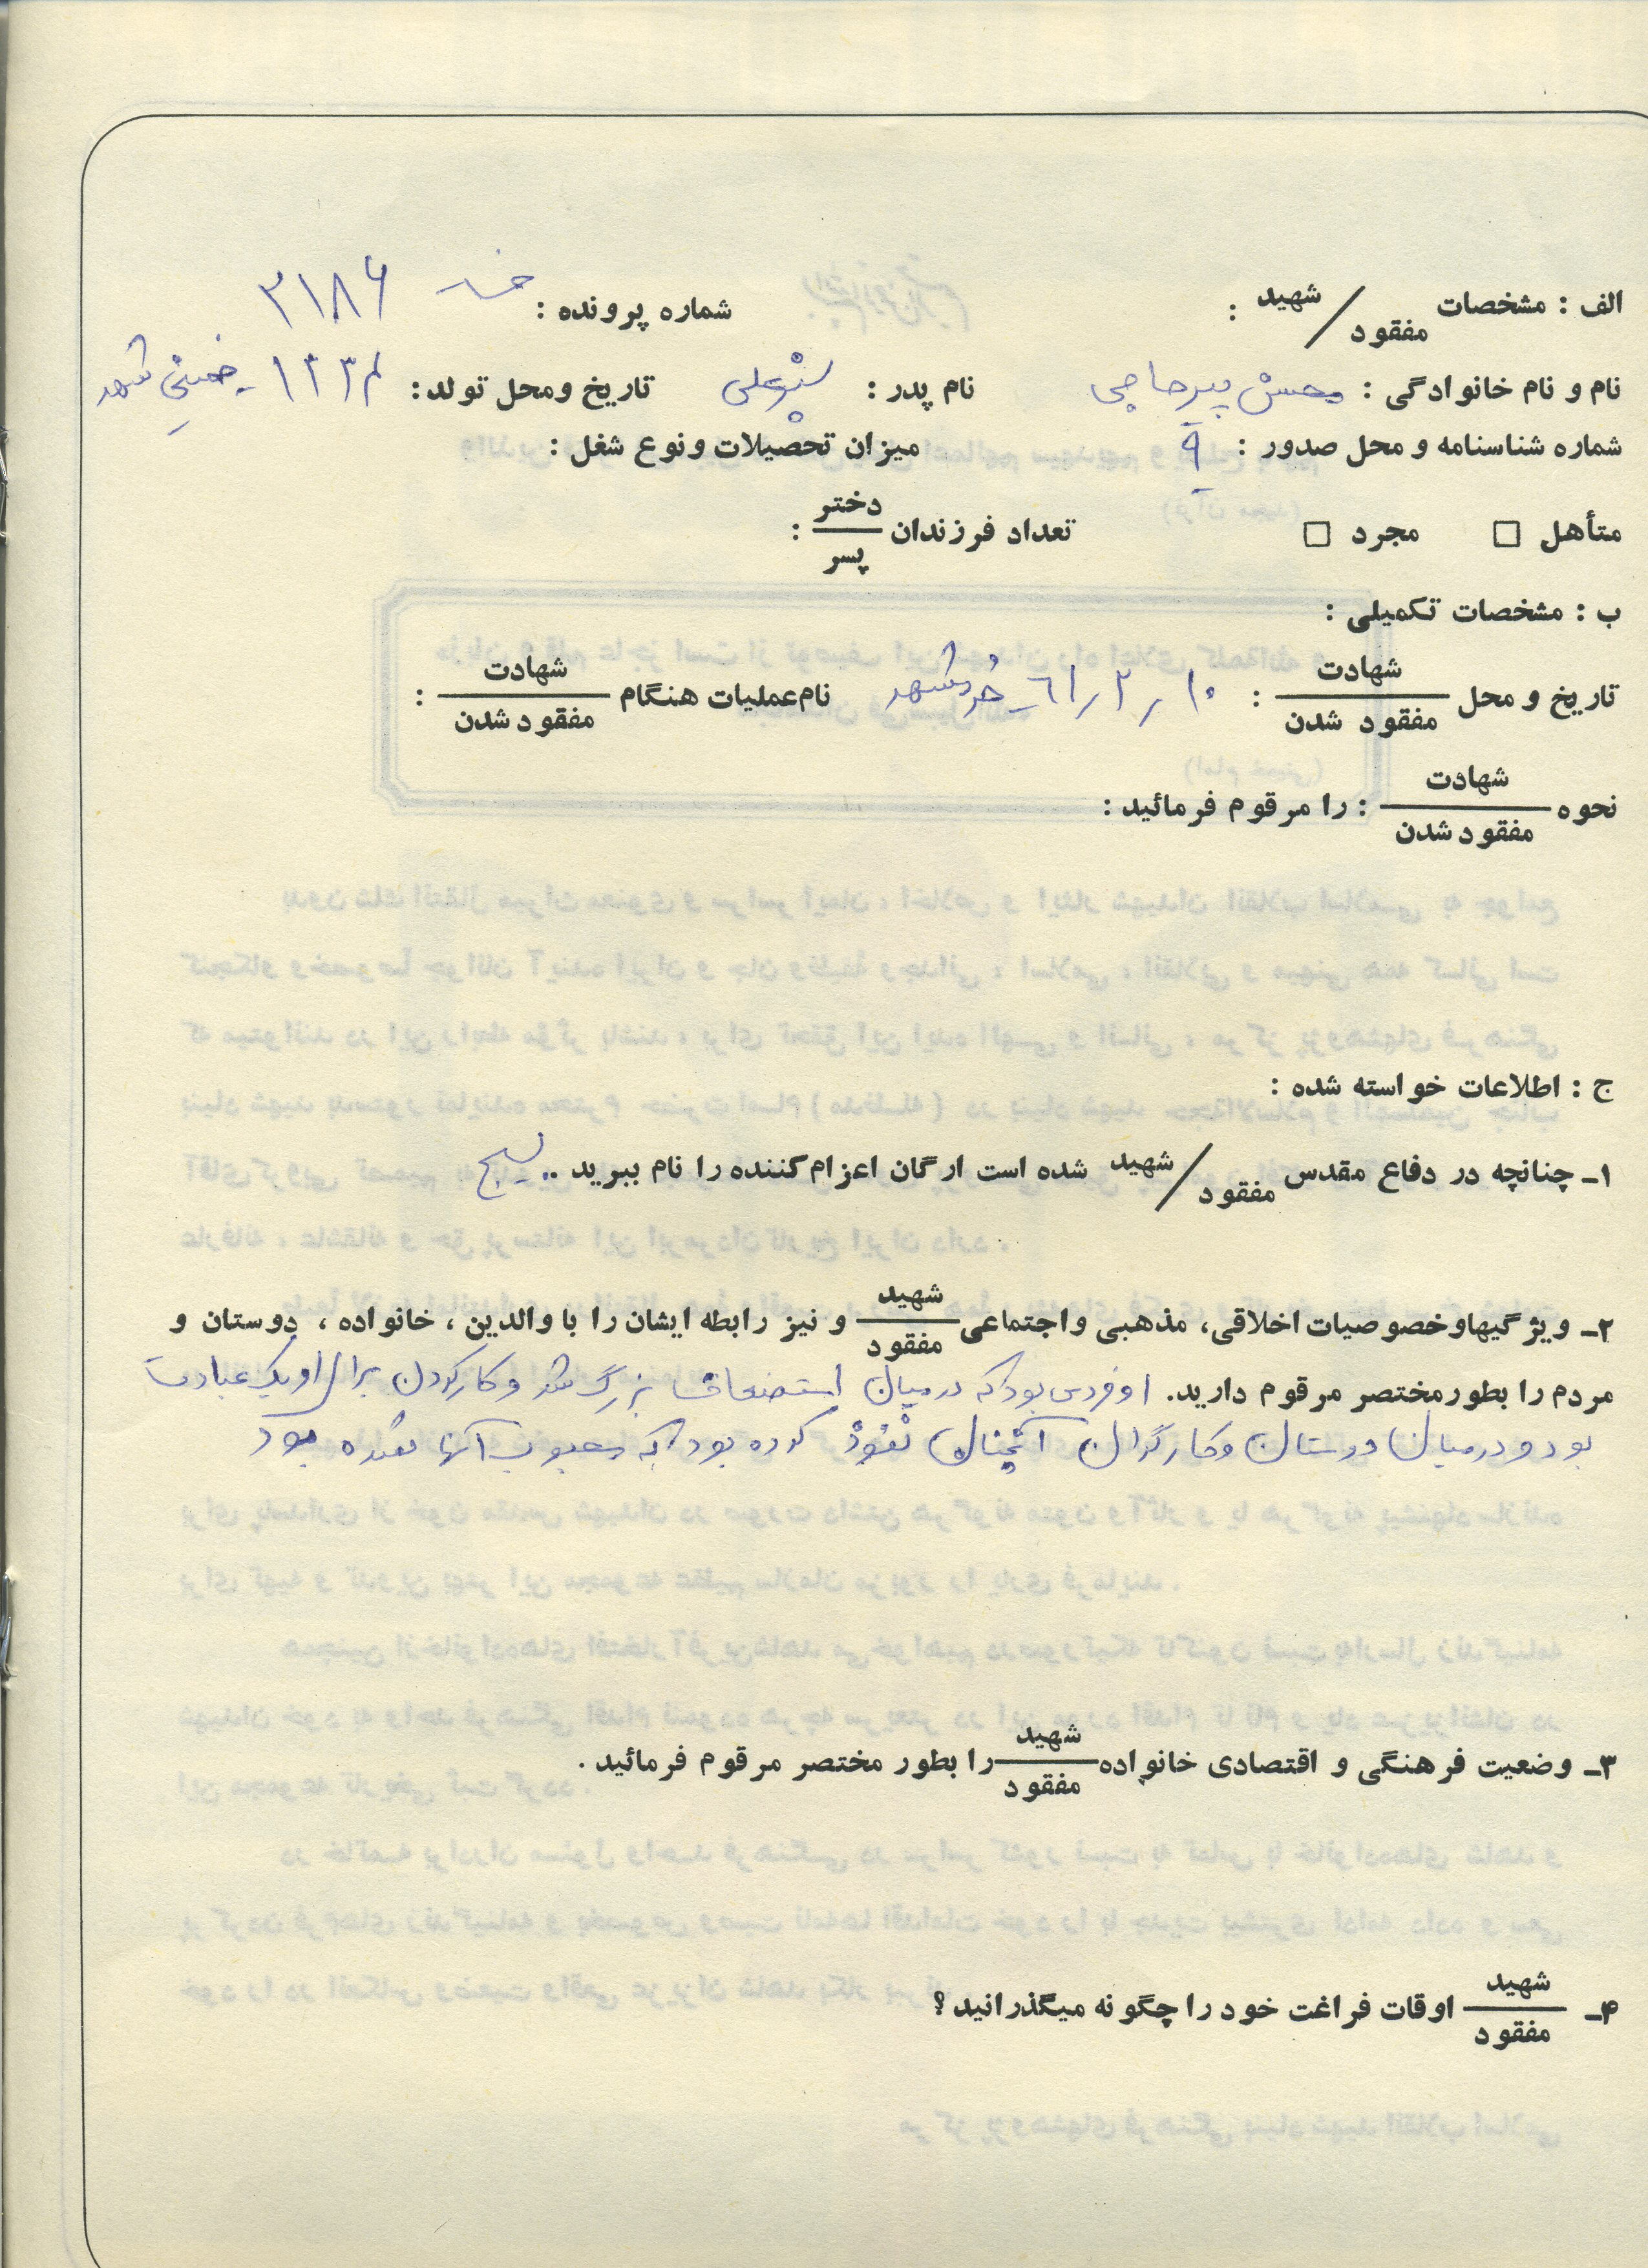 الف : مشخصات شهید / مفقود :
شماره پرونده : ۳۱۸۶
نام و نام خانوادگی : محسن پیرحاجی
نام پدر :
تاریخ ومحل تولد : خمینی شهر
شماره شناسنامه و محل صدور : ۹
میزان تحصیلات و نوع شغل :
متأهل □ مجرد □
تعداد فرزندان دختر / پسر :
ب : مشخصات تکمیلی :
تاریخ و محل شهادت / مفقود شدن : ۱۰ ر ۲ ر ۶۱ ـ خرمشهر
نام عملیات هنگام شهادت / مفقود شدن :
نحوه شهادت / مفقود شدن : را مرقوم فرمائید :
ج : اطلاعات خواسته شده :
۱ـ چنانچه در دفاع مقدس شهید / مفقود شده است ارگان اعزام کننده را نام ببرید .. بسیج
۲ـ ویژگیهاوخصوصیات اخلاقی، مذهبی واجتماعی شهید / مفقود و نیز رابطه ایشان را با والدین ، خانواده ، دوستان و
مردم را بطورمختصر مرقوم دارید. او فردی بود که در میان استضعاف بزرگ شد و کار کردن برای او یک عبادت
بود و در میان دوستان و کارگران آنچنان نفوذ کرده بود که محبوب آنها شده بود
۳ـ وضعیت فرهنگی و اقتصادی خانواده شهید / مفقود را بطور مختصر مرقوم فرمائید .
۴ـ شهید / مفقود اوقات فراغت خود را چگونه میگذرانید ؟